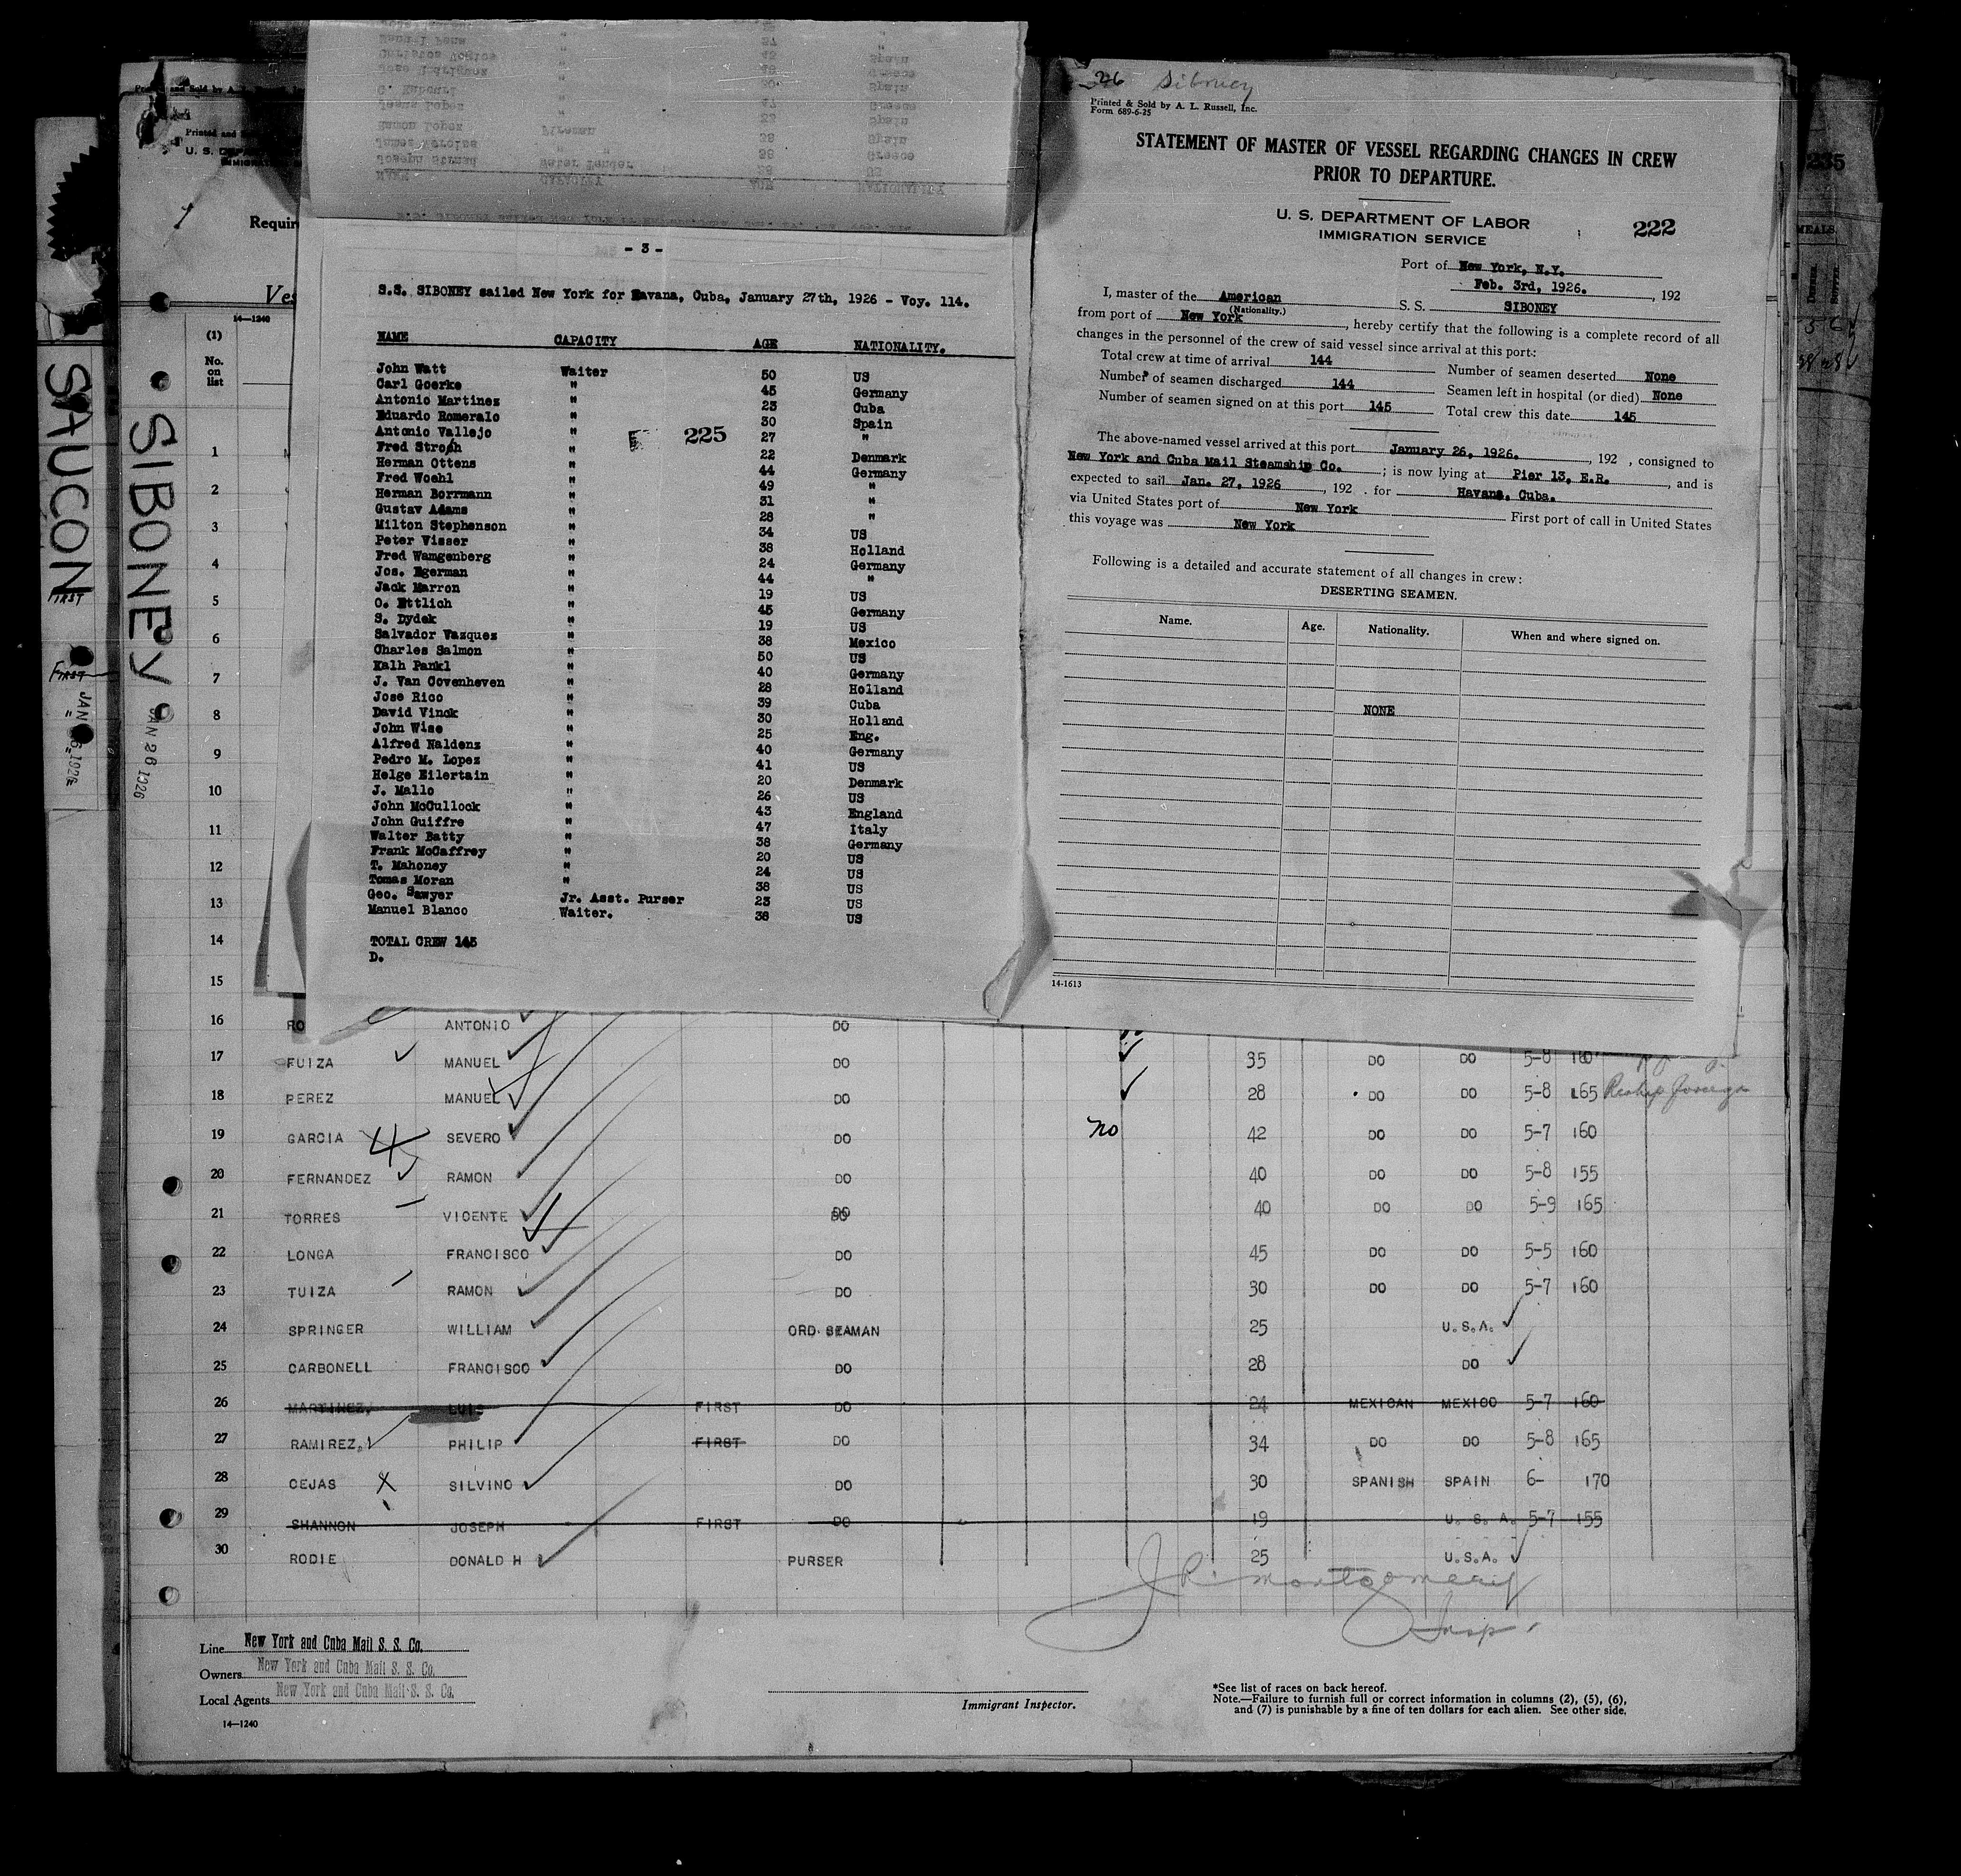 SAUCON
FIRST
FIRST
SIBONEY
JAN 26 1926
Printed and Sold by A.
Printed and
U. S. DEPA
IMMIGRA
Requir
Ves
14—1240
(1)
No.
on
list
- 3 -
S.S. SIBONEY sailed New York for Havana, Cuba, January 27th, 1926 - Voy. 114.
NAME CAPACITY AGE NATIONALITY.
John Watt Waiter 50 US
Carl Goerke " 45 Germany
Antonio Martinez " 23 Cuba
Eduardo Romeralo " 30 Spain
Antonio Vallejo " 27 "
225
Fred Stroph " 22 Denmark
Herman Ottens " 44 Germany
Fred Woehl " 49 "
Herman Borrmann " 31 "
Gustav Adams " 28 "
Milton Stephenson " 34 US
Peter Visser " 38 Holland
Fred Wamgenberg " 24 Germany
Jos. Egerman " 44 "
Jack Marron " 19 US
O. Ettlich " 45 Germany
S. Dydek " 19 US
Salvador Vazquez " 38 Mexico
Charles Salmon " 50 US
Kalh Pankl " 40 Germany
J. Van Covenheven " 28 Holland
Jose Rico " 39 Cuba
David Vinck " 30 Holland
John Wise " 25 Eng.
Alfred Naldenz " 40 Germany
Pedro M. Lopez " 41 US
Helge Eilertain " 20 Denmark
J. Mallo " 26 US
John McCullock " 43 England
John Guiffre " 47 Italy
Walter Batty " 38 Germany
Frank McCaffrey " 20 US
T. Mahoney " 24 US
Tomas Moran " 38 US
Geo. Sawyer Jr. Asst. Purser 23 US
Manuel Blanco Waiter. 38 US
TOTAL CREW 145
D.
26 Siboney
Printed & Sold by A. L. Russell, Inc.
Form 689-6-25
STATEMENT OF MASTER OF VESSEL REGARDING CHANGES IN CREW
PRIOR TO DEPARTURE.
U. S. DEPARTMENT OF LABOR
IMMIGRATION SERVICE
222
Port of New York, N.Y.
Feb. 3rd, 1926. , 192
I, master of the American S. S. SIBONEY
(Nationality.)
from port of New York , hereby certify that the following is a complete record of all
changes in the personnel of the crew of said vessel since arrival at this port:
Total crew at time of arrival 144 Number of seamen deserted None
Number of seamen discharged 144 Seamen left in hospital (or died) None
Number of seamen signed on at this port 145 Total crew this date 145
The above-named vessel arrived at this port January 26, 1926. , 192 , consigned to
New York and Cuba Mail Steamship Co. ; is now lying at Pier 13, E.R. , and is
expected to sail Jan. 27, 1926 , 192 . for Havana, Cuba.
via United States port of New York First port of call in United States
this voyage was New York
Following is a detailed and accurate statement of all changes in crew:
DESERTING SEAMEN.
Name. Age. Nationality. When and where signed on.
NONE
14-1613
235
MEALS.
1
2
3
4
5
6
7
8
9
10
11
12
13
14
15
16 RO ANTONIO DO
17 FUIZA MANUEL DO 35 DO DO 5-8 160
18 PEREZ MANUEL DO 28 DO DO 5-8 165 Reship foreign
19 GARCIA SEVERO DO no 42 DO DO 5-7 160
20 FERNANDEZ RAMON DO 40 DO DO 5-8 155
21 TORRES VICENTE DO 40 DO DO 5-9 165
22 LONGA FRANCISCO DO 45 DO DO 5-5 160
23 TUIZA RAMON DO 30 DO DO 5-7 160
24 SPRINGER WILLIAM ORD. SEAMAN 25 U.S.A.
25 CARBONELL FRANCISCO DO 28 DO
26 MARTINEZ, LUIS FIRST DO 24 MEXICAN MEXICO 5-7 160
27 RAMIREZ, PHILIP FIRST DO 34 DO DO 5-8 165
28 CEJAS X SILVINO DO 30 SPANISH SPAIN 6- 170
29 SHANNON JOSEPH FIRST DO 19 U. S. A. 5-7 155
30 RODIE DONALD H PURSER 25 U.S.A.
J R Montgomery
Insp.
Line New York and Cuba Mail S. S. Co.
Owners New York and Cuba Mail S. S. Co.
Local Agents New York and Cuba Mail S. S. Co.
14—1240
Immigrant Inspector.
*See list of races on back hereof.
Note.—Failure to furnish full or correct information in columns (2), (5), (6),
and (7) is punishable by a fine of ten dollars for each alien. See other side.